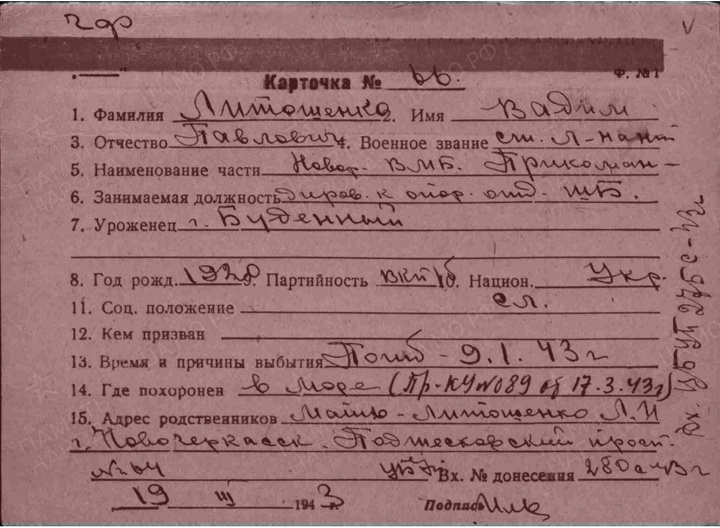 Ф. №1
Карточка № 66.
1. Фамилия Литошенко 2. Имя Вадим
3. Отчество Павлович 4. Военное звание ст. л-нант
5. Наименование части Новор. ВМБ. Прикоман-
6. Занимаемая должность диров. к опер. отд. ШБ.
7. Уроженец г. Буденный
8. Год рожд. 1920 9. Партийность ВКПб 10. Национ. Укр.
11. Соц. положение сл.
12. Кем призван
13. Время и причины выбытия Погиб - 9.1.43 г
14. Где похоронен в море (Пр-КУ №089 от 17.3.43г)
15. Адрес родственников Мать - Литошенко Л.И
г. Новочеркасск. Подтесковский просп.
№64 Вх. № донесения 280с-43г
19 III 1943 г.
Подпись